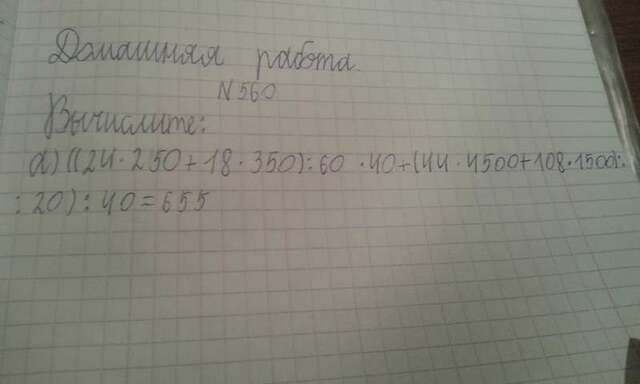 Домашняя работа.
N560
Вычислите:
а) ((24·250+18·350):60·40+(44·4500+108·1500):
:20):40=655